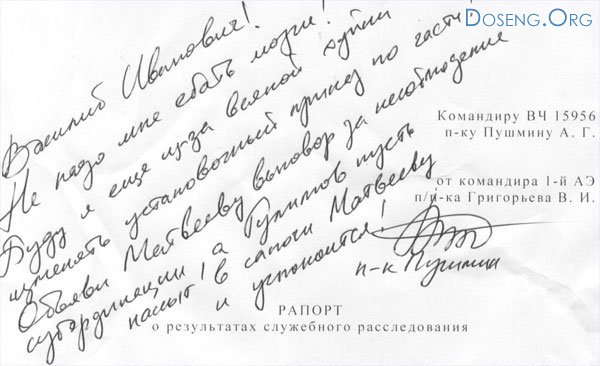 Doseng.Org
Василий Иванович!
Не надо мне ебать мозги!
Буду я еще из-за всякой хуйни
изменять установочный приказ по части!
Объяви Матвееву выговор за несоблюдение
субординации, а Гулимов пусть
нассыт в сапоги Матвееву
и успокоится!
п-к Пушмин
Командиру ВЧ 15956
п-ку Пушмину А. Г.
от командира 1-й АЭ
п/п-ка Григорьева В. И.
РАПОРТ
о результатах служебного расследования